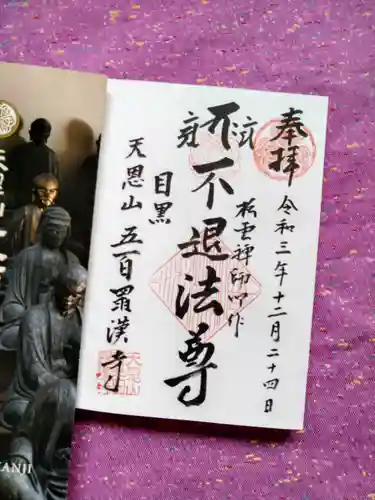 奉拝
令和三年十二月二十四日
松雲禅師御作
不退法尊
目黒
天恩山 五百羅漢寺
ANJI